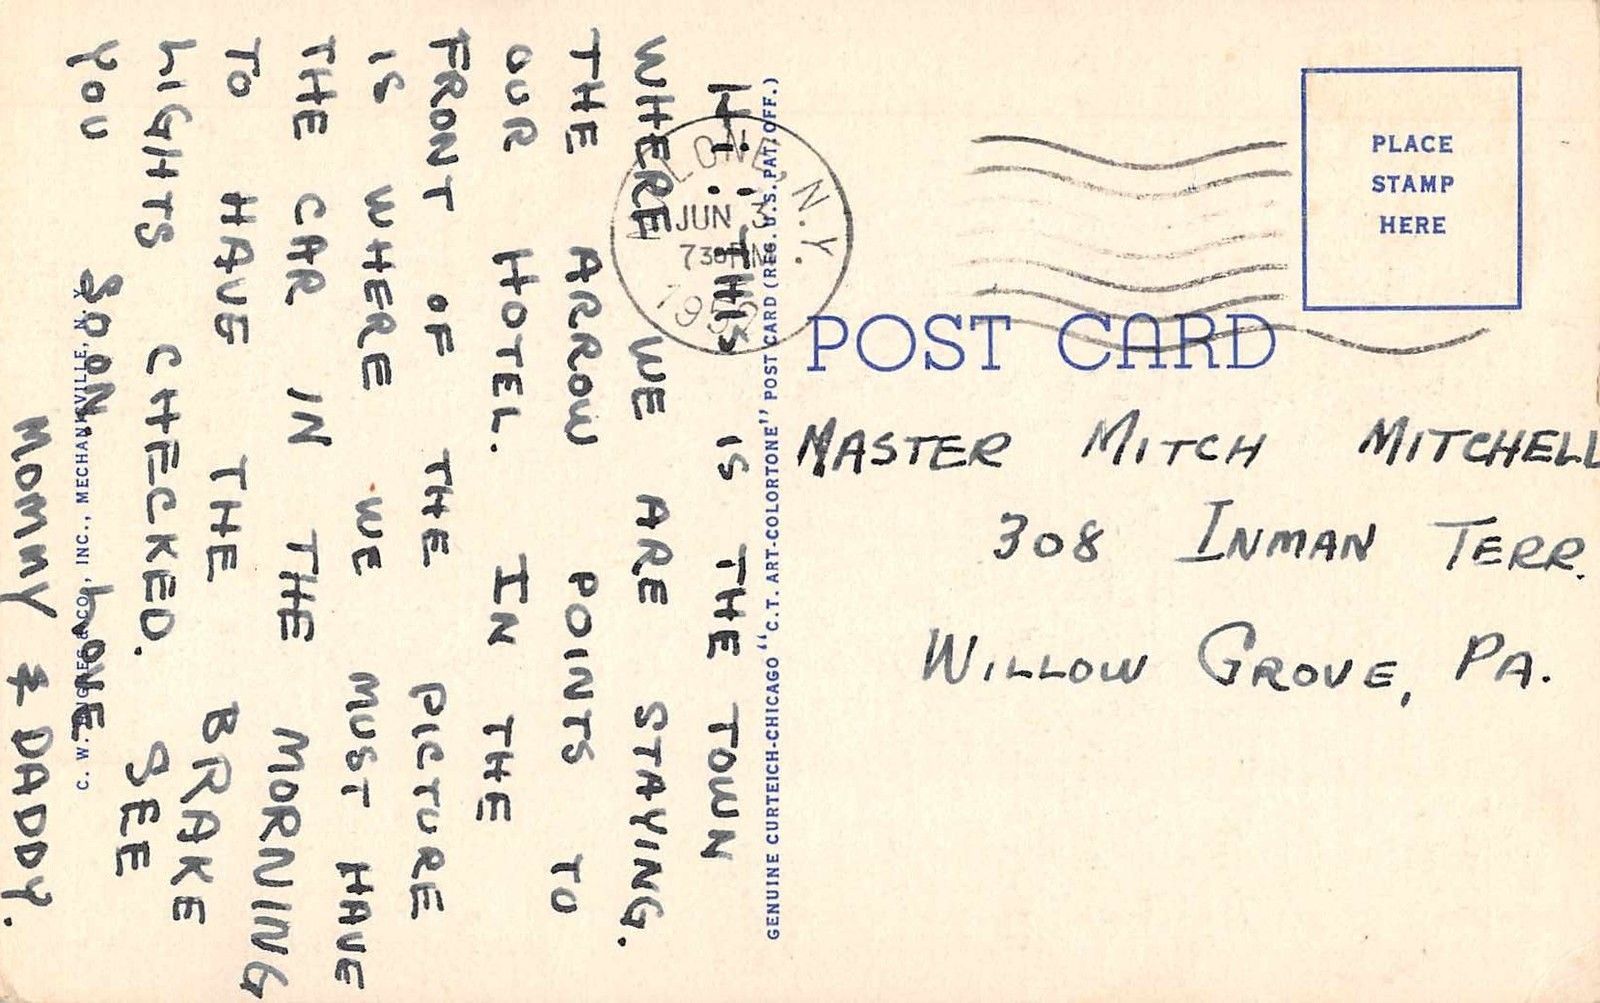 Hi: THIS IS THE TOWN
WHERE WE ARE STAYING.
THE ARROW POINTS TO
OUR HOTEL. IN THE
FRONT OF THE PICTURE
IS WHERE WE MUST HAVE
THE CAR IN THE MORNING
TO HAVE THE BRAKE
LIGHTS CHECKED. SEE
YOU SOON. LOVE
MOMMY & DADDY.
C. W. HUGHES & CO., INC., MECHANICVILLE, N. Y.
GENUINE CURTEICH-CHICAGO "C.T. ART-COLORTONE" POST CARD (REG. U.S. PAT. OFF.)
MALONE, N.Y.
JUN 3
730 PM
1952
PLACE
STAMP
HERE
POST CARD
MASTER MITCH MITCHELL
308 INMAN TERR.
WILLOW GROVE, PA.